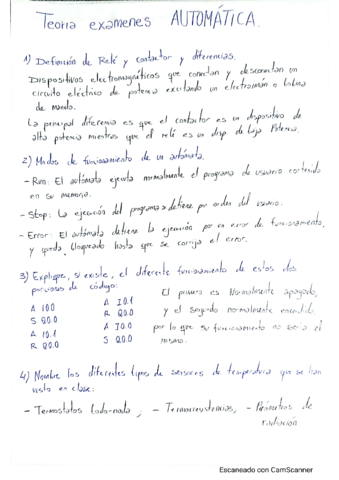 Teoria examenes AUTOMÁTICA.
1) Definición de Relé y contactor y diferencias.
Dispositivos electromagnéticos que conectan y desconectan un
circuito eléctrico de potencia excitando un electroimán o bobina
de mando.
La principal diferencia es que el contactor es un dispositivo de
alta potencia mientras que el relé es un disp. de baja Potencia.
2) Modos de funcionamiento de un autómata.
- Run: El autómata ejecuta normalmente el programa de usuario contenido
en su memoria.
- Stop: La ejecución del programa se detiene por orden del usuario.
- Error: El autómata detiene la ejecución por un error de funcionamiento,
y queda bloqueado hasta que se corrija el error.
3) Explique, si existe, el diferente funcionamiento de estos dos
porciones de código:
A I0.0
S Q0.0
A I0.1
R Q0.0
A I0.1
R Q0.0
A I0.0
S Q0.0
El primero es Normalmente apagado,
y el segundo normalmente encendido,
por lo que su funcionamiento no sería el
mismo.
4) Nombre los diferentes tipos de sensores de temperatura que se han
visto en clase:
- Termostatos todo-nada; - Termorresistencias, - Pirómetros de
radiación
Escaneado con CamScanner